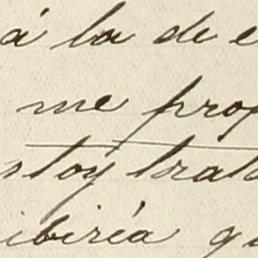 á la de e
me prop
stoy trata
ibiría qu